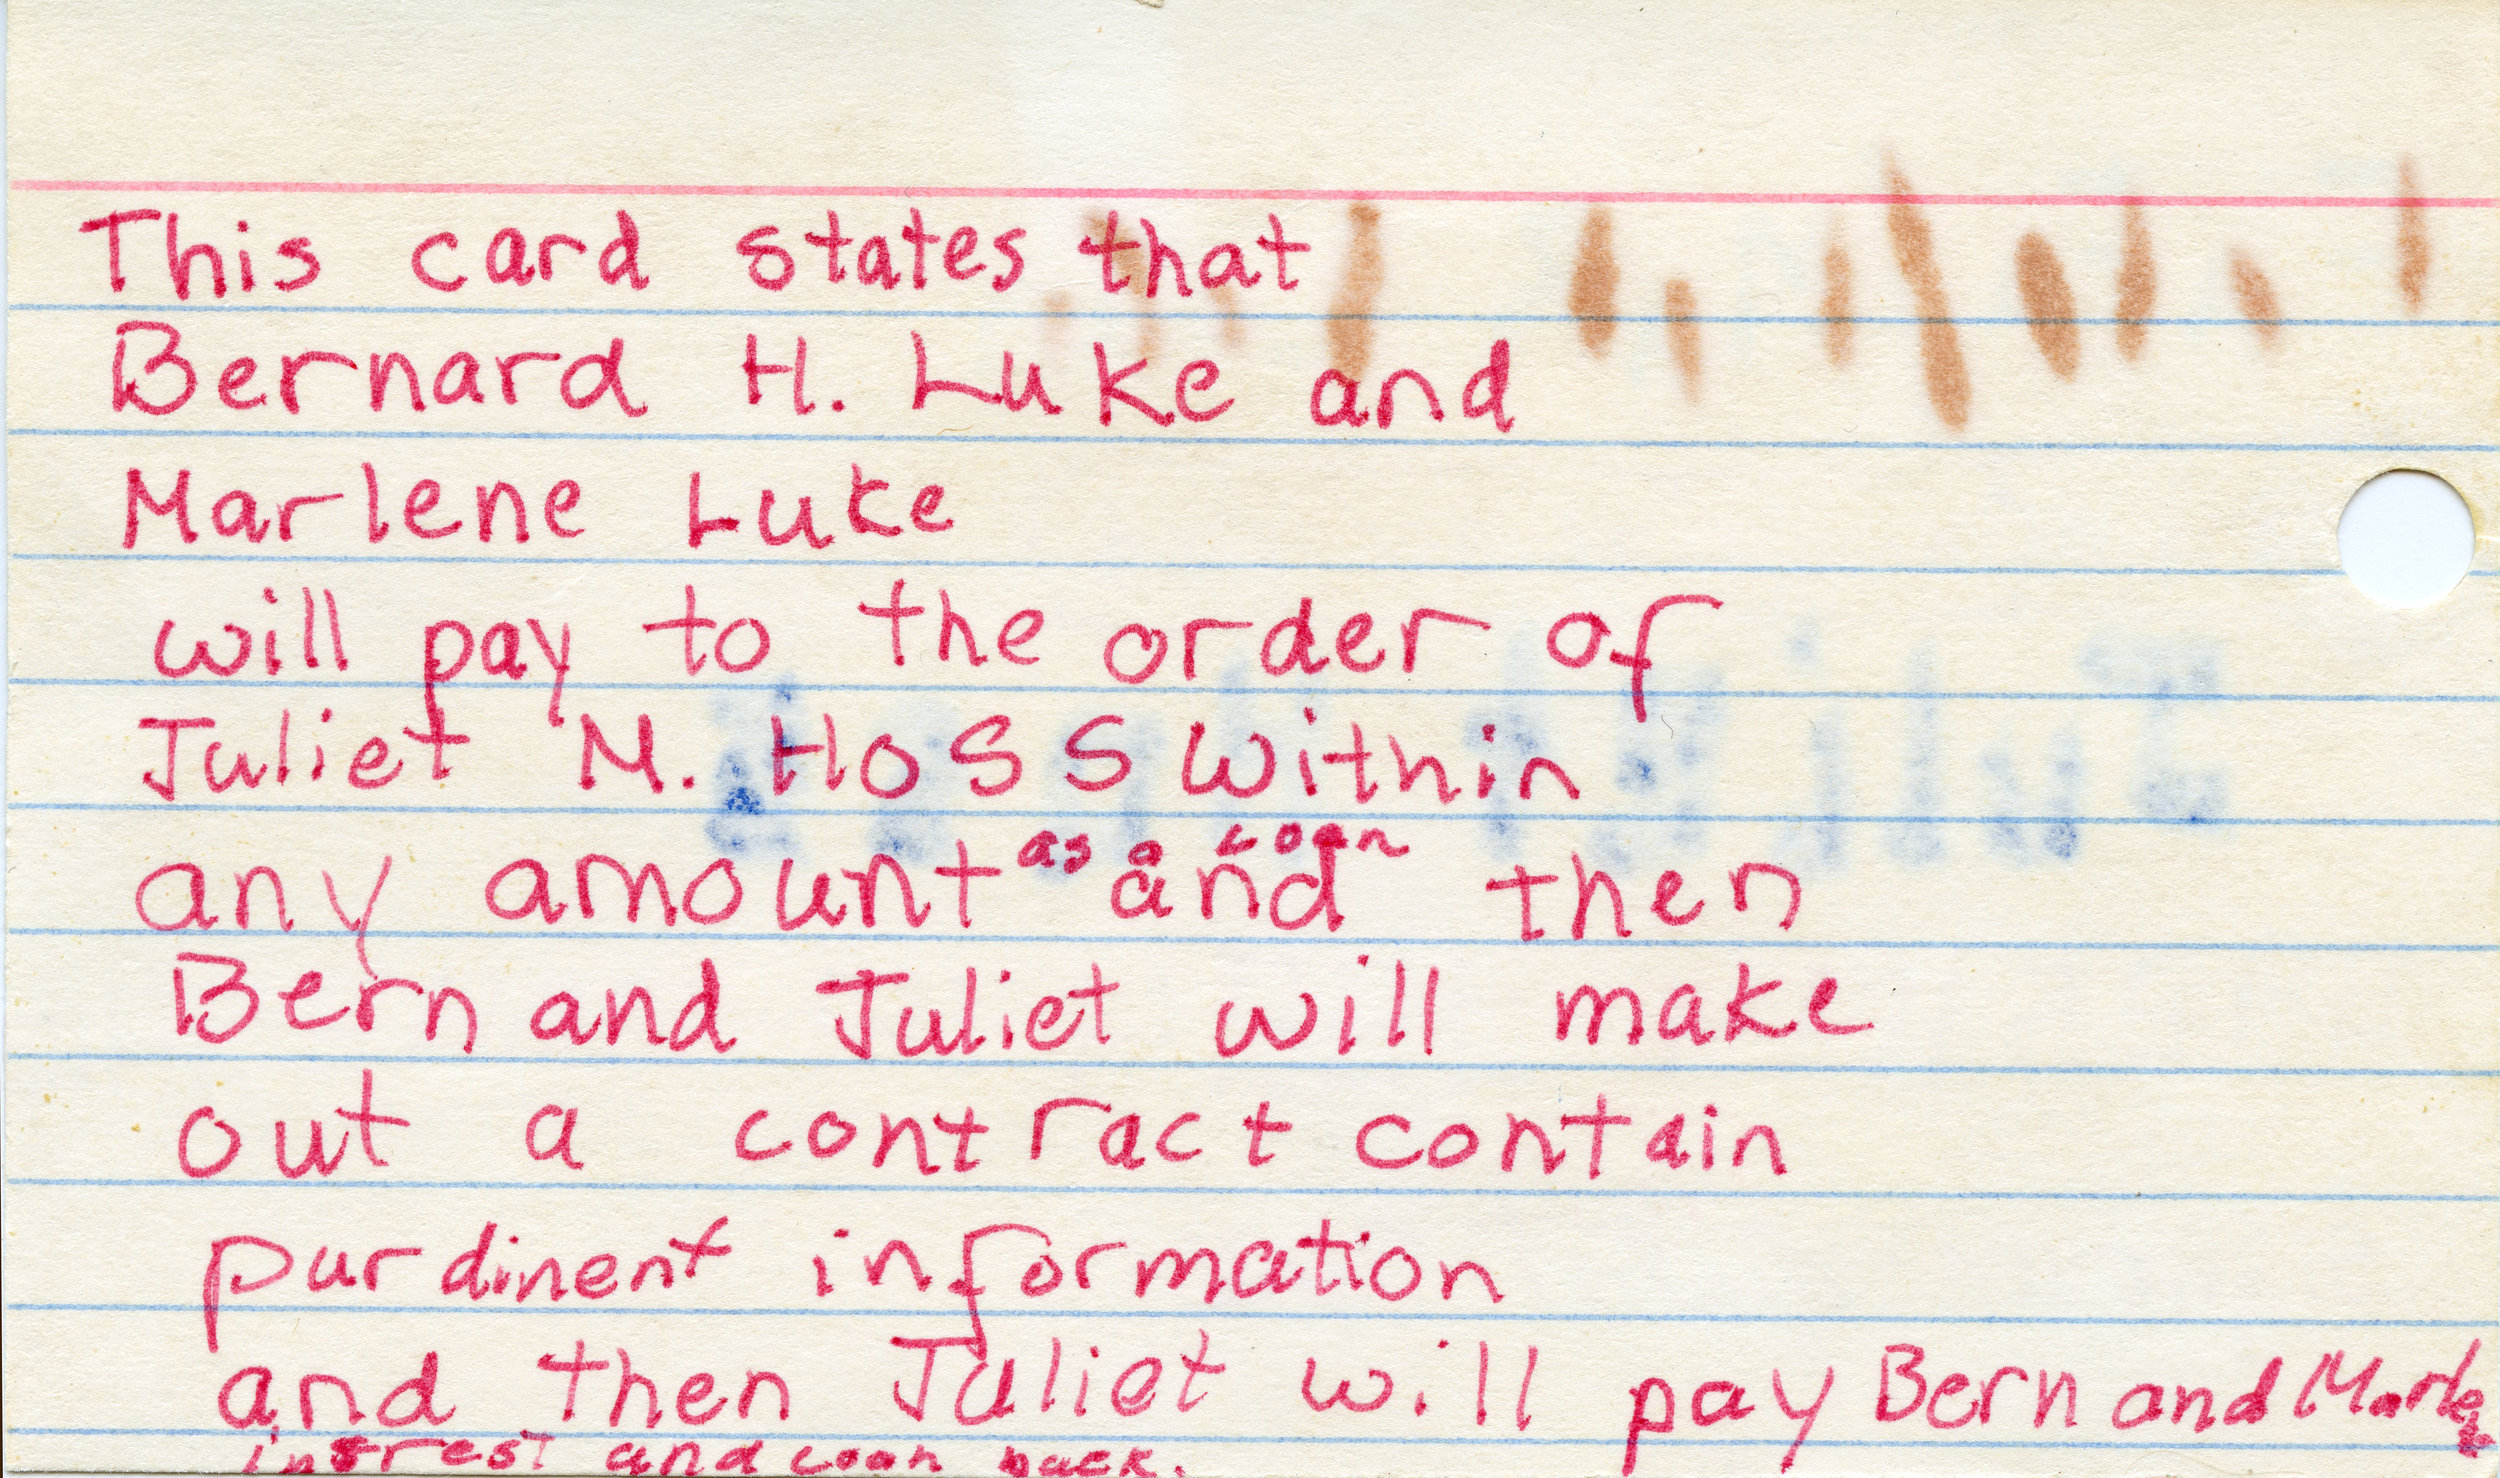 This card states that
Bernard H. Luke and
Marlene Luke
will pay to the order of
Juliet M. Hoss within
any amount as a loan and then
Bern and Juliet will make
out a contract contain
purdinent information
and then Juliet will pay Bern and Marlene
intrest and loan back.